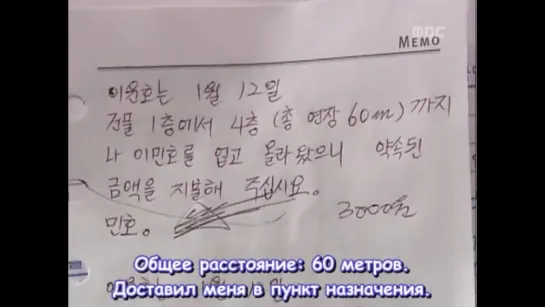 MBC
MEMO
이윤호는 1월 12일
건물 1층에서 4층 (총 연장 60m) 까지
나 이민호를 업고 올라왔으니 약속된
금액을 지불해 주십시요.
민호. 3000원
Общее расстояние: 60 метров.
Доставил меня в пункт назначения.